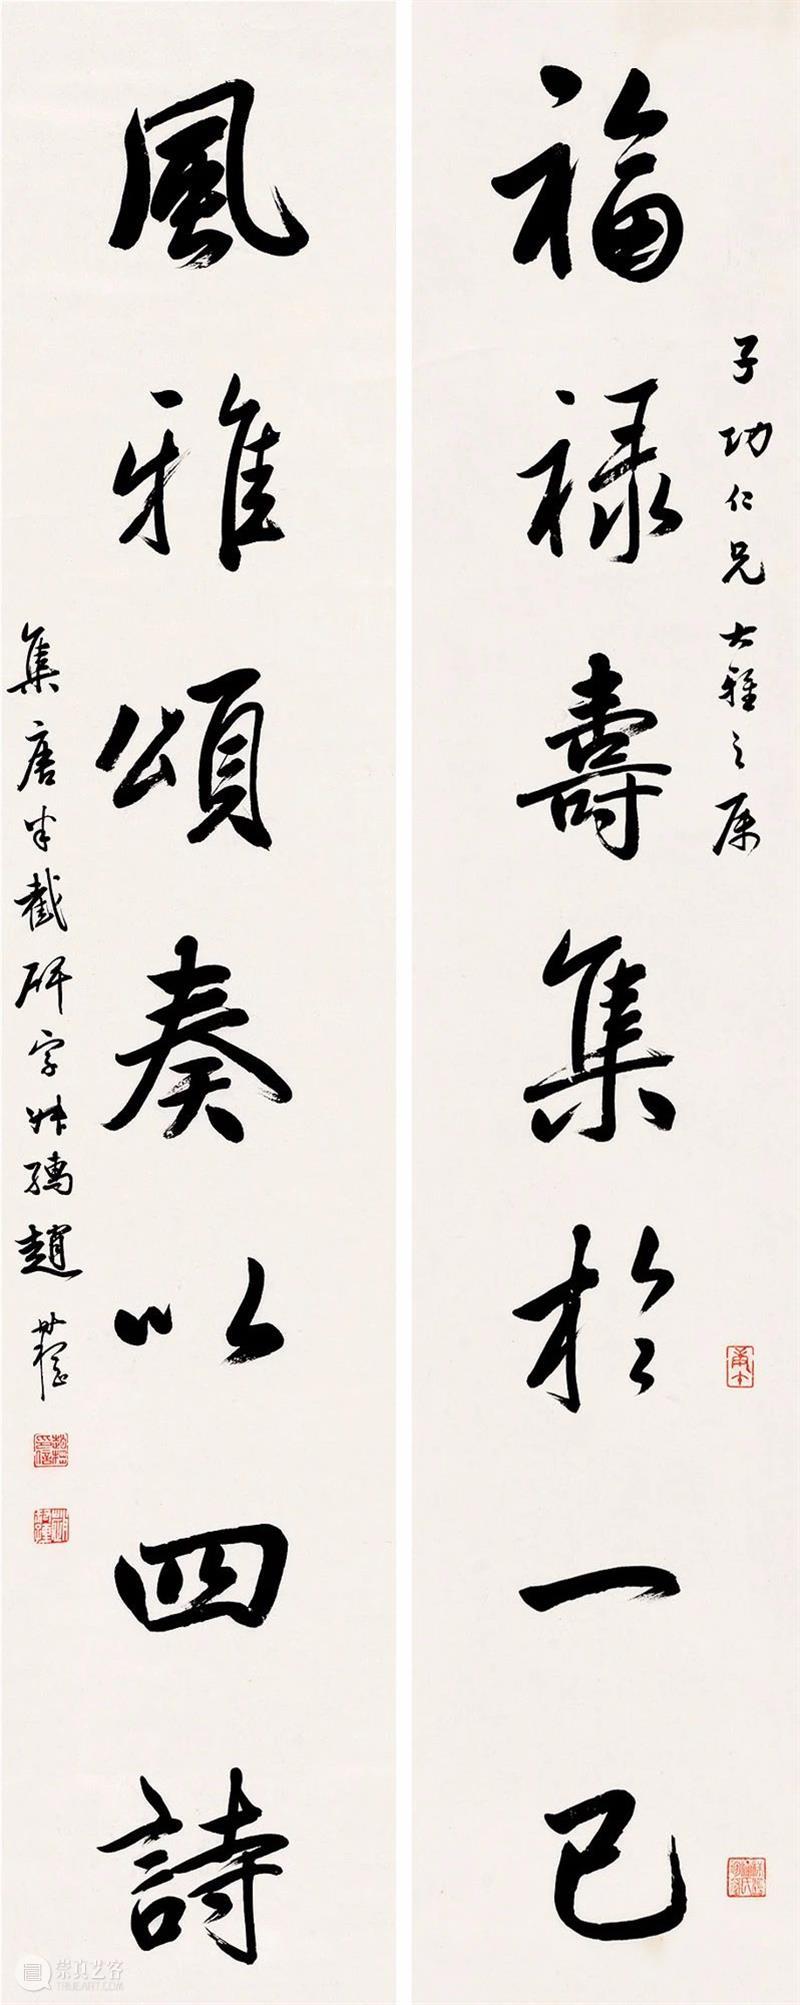 福禄壽集於一己
子功仁兄大雅之属
風雅頌奏以四詩
集唐半截碑字
趙世
崇真艺客
TRUEART.COM